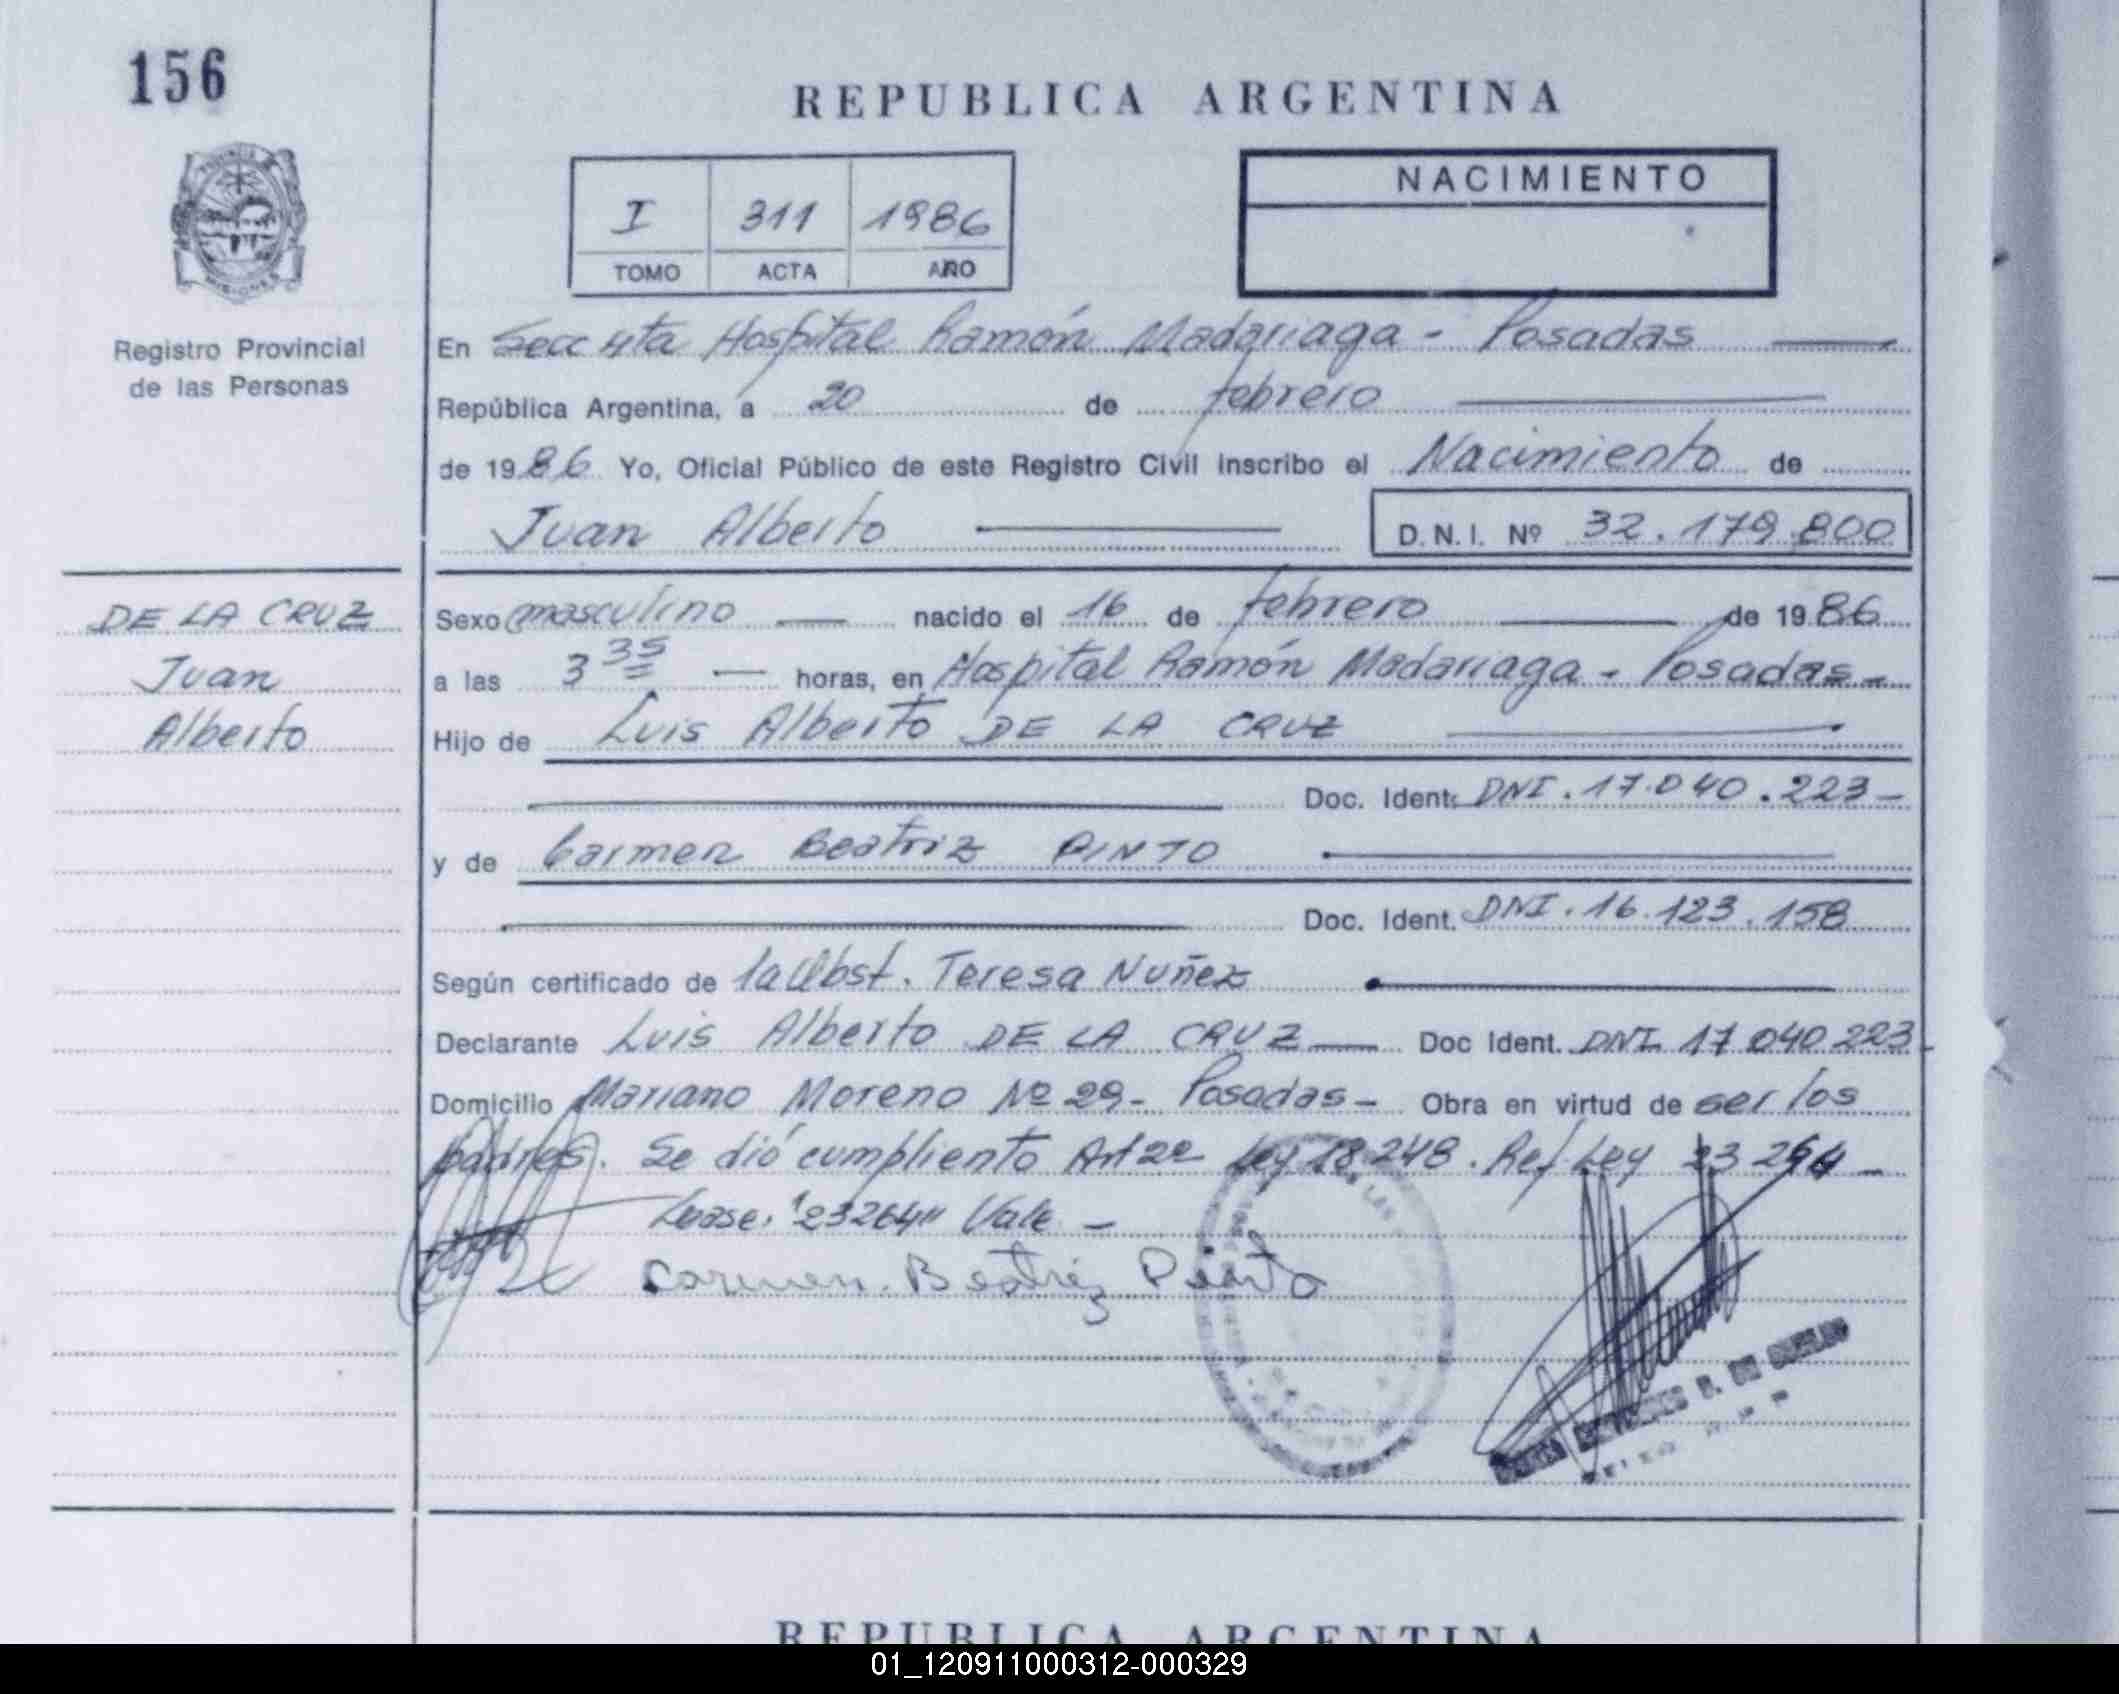 156
REPUBLICA ARGENTINA
NACIMIENTO
I 311 1986
TOMO ACTA AÑO
PROVINCIA DE
MISIONES
Registro Provincial
de las Personas
En Secc 4ta Hospital Ramón Madariaga - Posadas
República Argentina, a 20 de febrero
de 1986 Yo, Oficial Público de este Registro Civil inscribo el Nacimiento de
Juan Alberto D.N.I. Nº 32.179.800
DE LA CRUZ
Juan
Alberto
Sexo masculino nacido el 16 de febrero de 1986
a las 3 35 horas, en Hospital Ramón Madariaga - Posadas -
Hijo de Luis Alberto DE LA CRUZ
Doc. Ident. DNI. 17.040.223 -
y de Carmen Beatriz PINTO
Doc. Ident. DNI. 16.123.158
Según certificado de la Obst. Teresa Nuñez
Declarante Luis Alberto DE LA CRUZ Doc Ident. DNI 17 040 223 -
Domicilio Mariano Moreno Nº 29 - Posadas - Obra en virtud de ser los
padres. Se dió cumpliento Art 2º Ley 18.248. Ref Ley 23 264 -
"23264" Vale -
Carmen Beatriz Pinto
REPUBLICA ARGENTINA
01_120911000312-000329